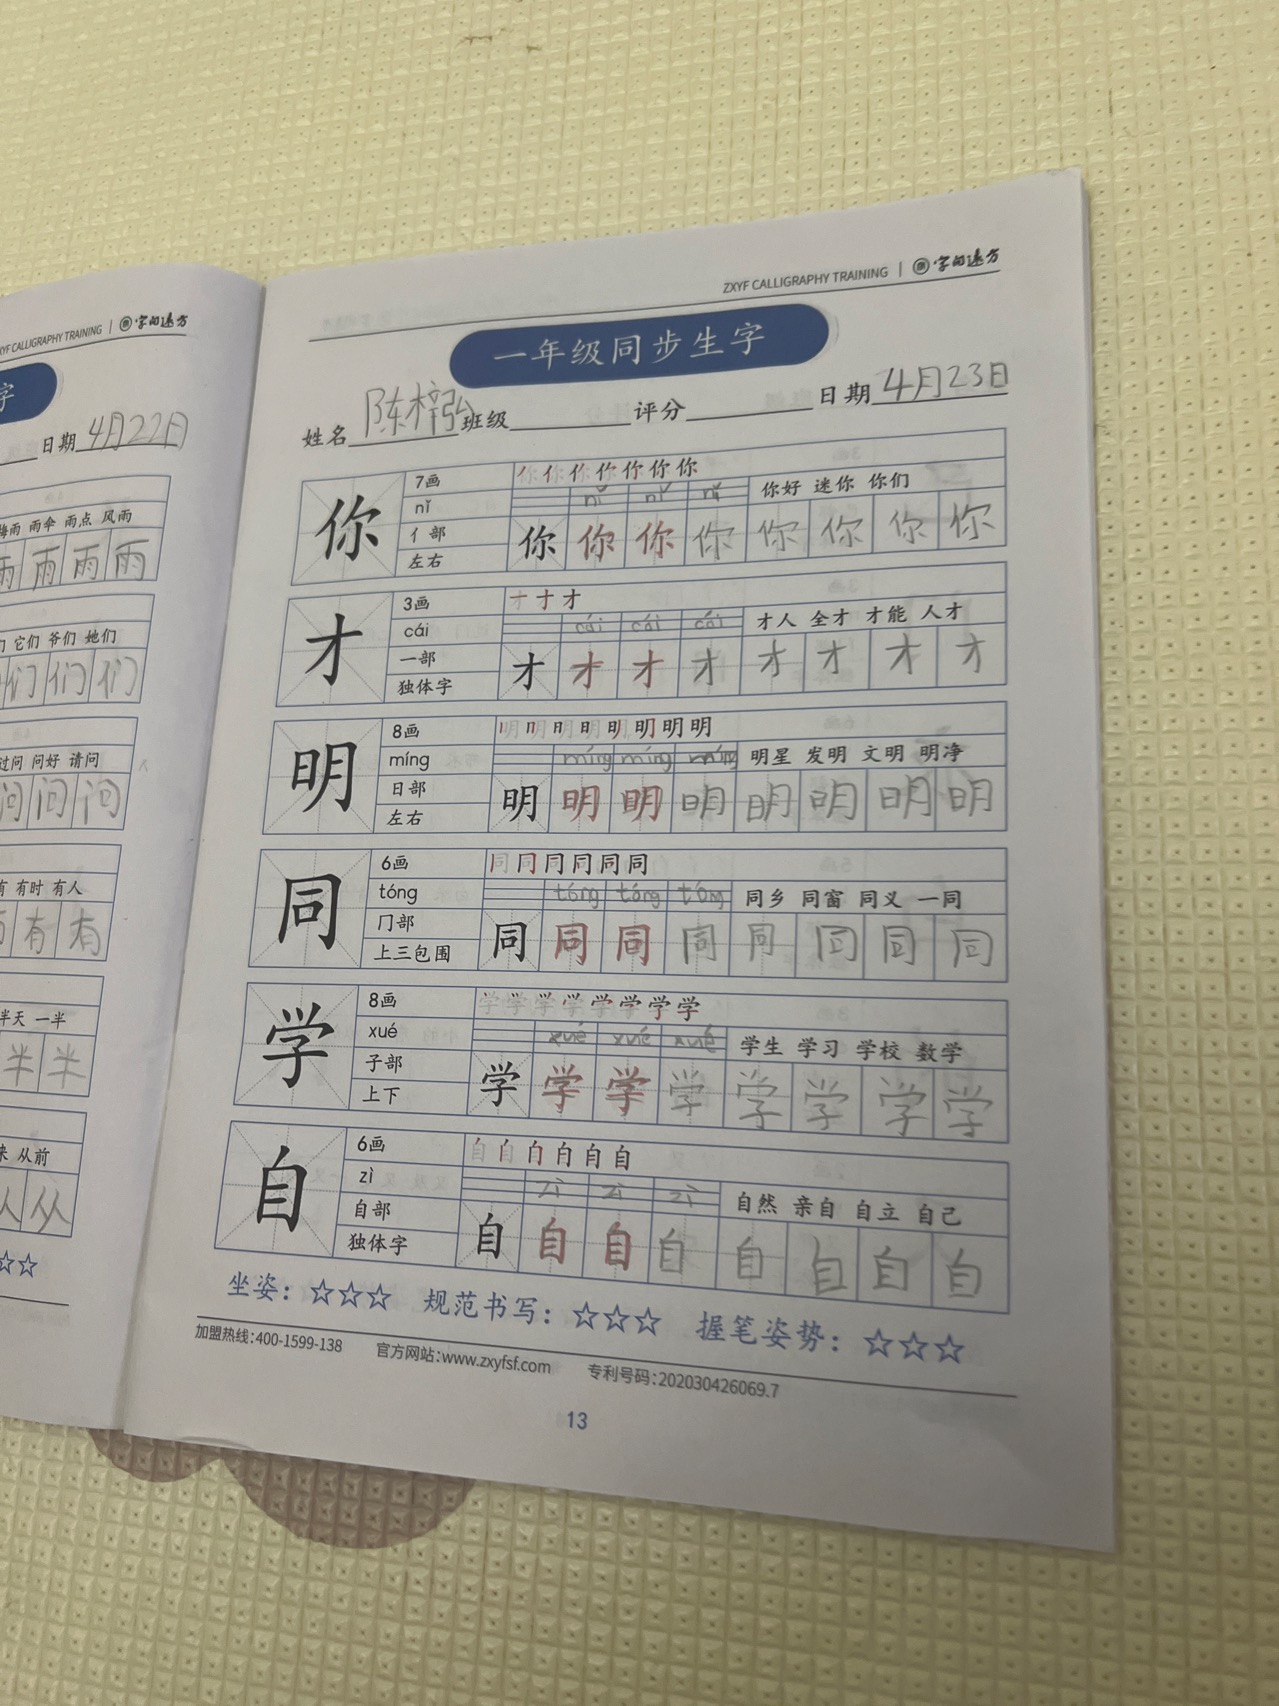 YF CALLIGRAPHY TRAINING | 字的远方
字
日期 4月22日
梅雨 雨伞 雨点 风雨
雨 雨 雨 雨
们 它们 爷们 她们
们 们 们
过问 问好 请问
问 问 问
有 有时 有人
有 有
半天 一半
半 半
来 从前
从 从
☆☆
ZXYF CALLIGRAPHY TRAINING | 字的远方
一年级同步生字
姓名 陈梓泓 班级 评分 日期 4月23日
你 7画 你 你 你
nǐ nǐ nǐ nǐ 你好 迷你 你们
亻部 你 你 你 你 你 你 你 你
左右
才 3画 一 十 才
cái cái cái cái 才人 全才 才能 人才
一部 才 才 才 才 才 才 才 才
独体字
明 8画 明 明 明
míng míng míng míng 明星 发明 文明 明净
日部 明 明 明 明 明 明 明 明
左右
同 6画 同 同 同 同 同 同
tóng tóng tóng tóng 同乡 同窗 同义 一同
冂部 同 同 同 同 同 同 同 同
上三包围
学 8画 学 学 学 学 学 学 学 学
xué xué xué xué 学生 学习 学校 数学
子部 学 学 学 学 学 学 学 学
上下
自 6画 自 自 自 自 自 自
zì zì zì zì 自然 亲自 自立 自己
自部 自 自 自 自 自 自 自 自
独体字
坐姿：☆☆☆ 规范书写：☆☆☆ 握笔姿势：☆☆☆
加盟热线:400-1599-138 官方网站:www.zxyfsf.com 专利号码:202030426069.7
13